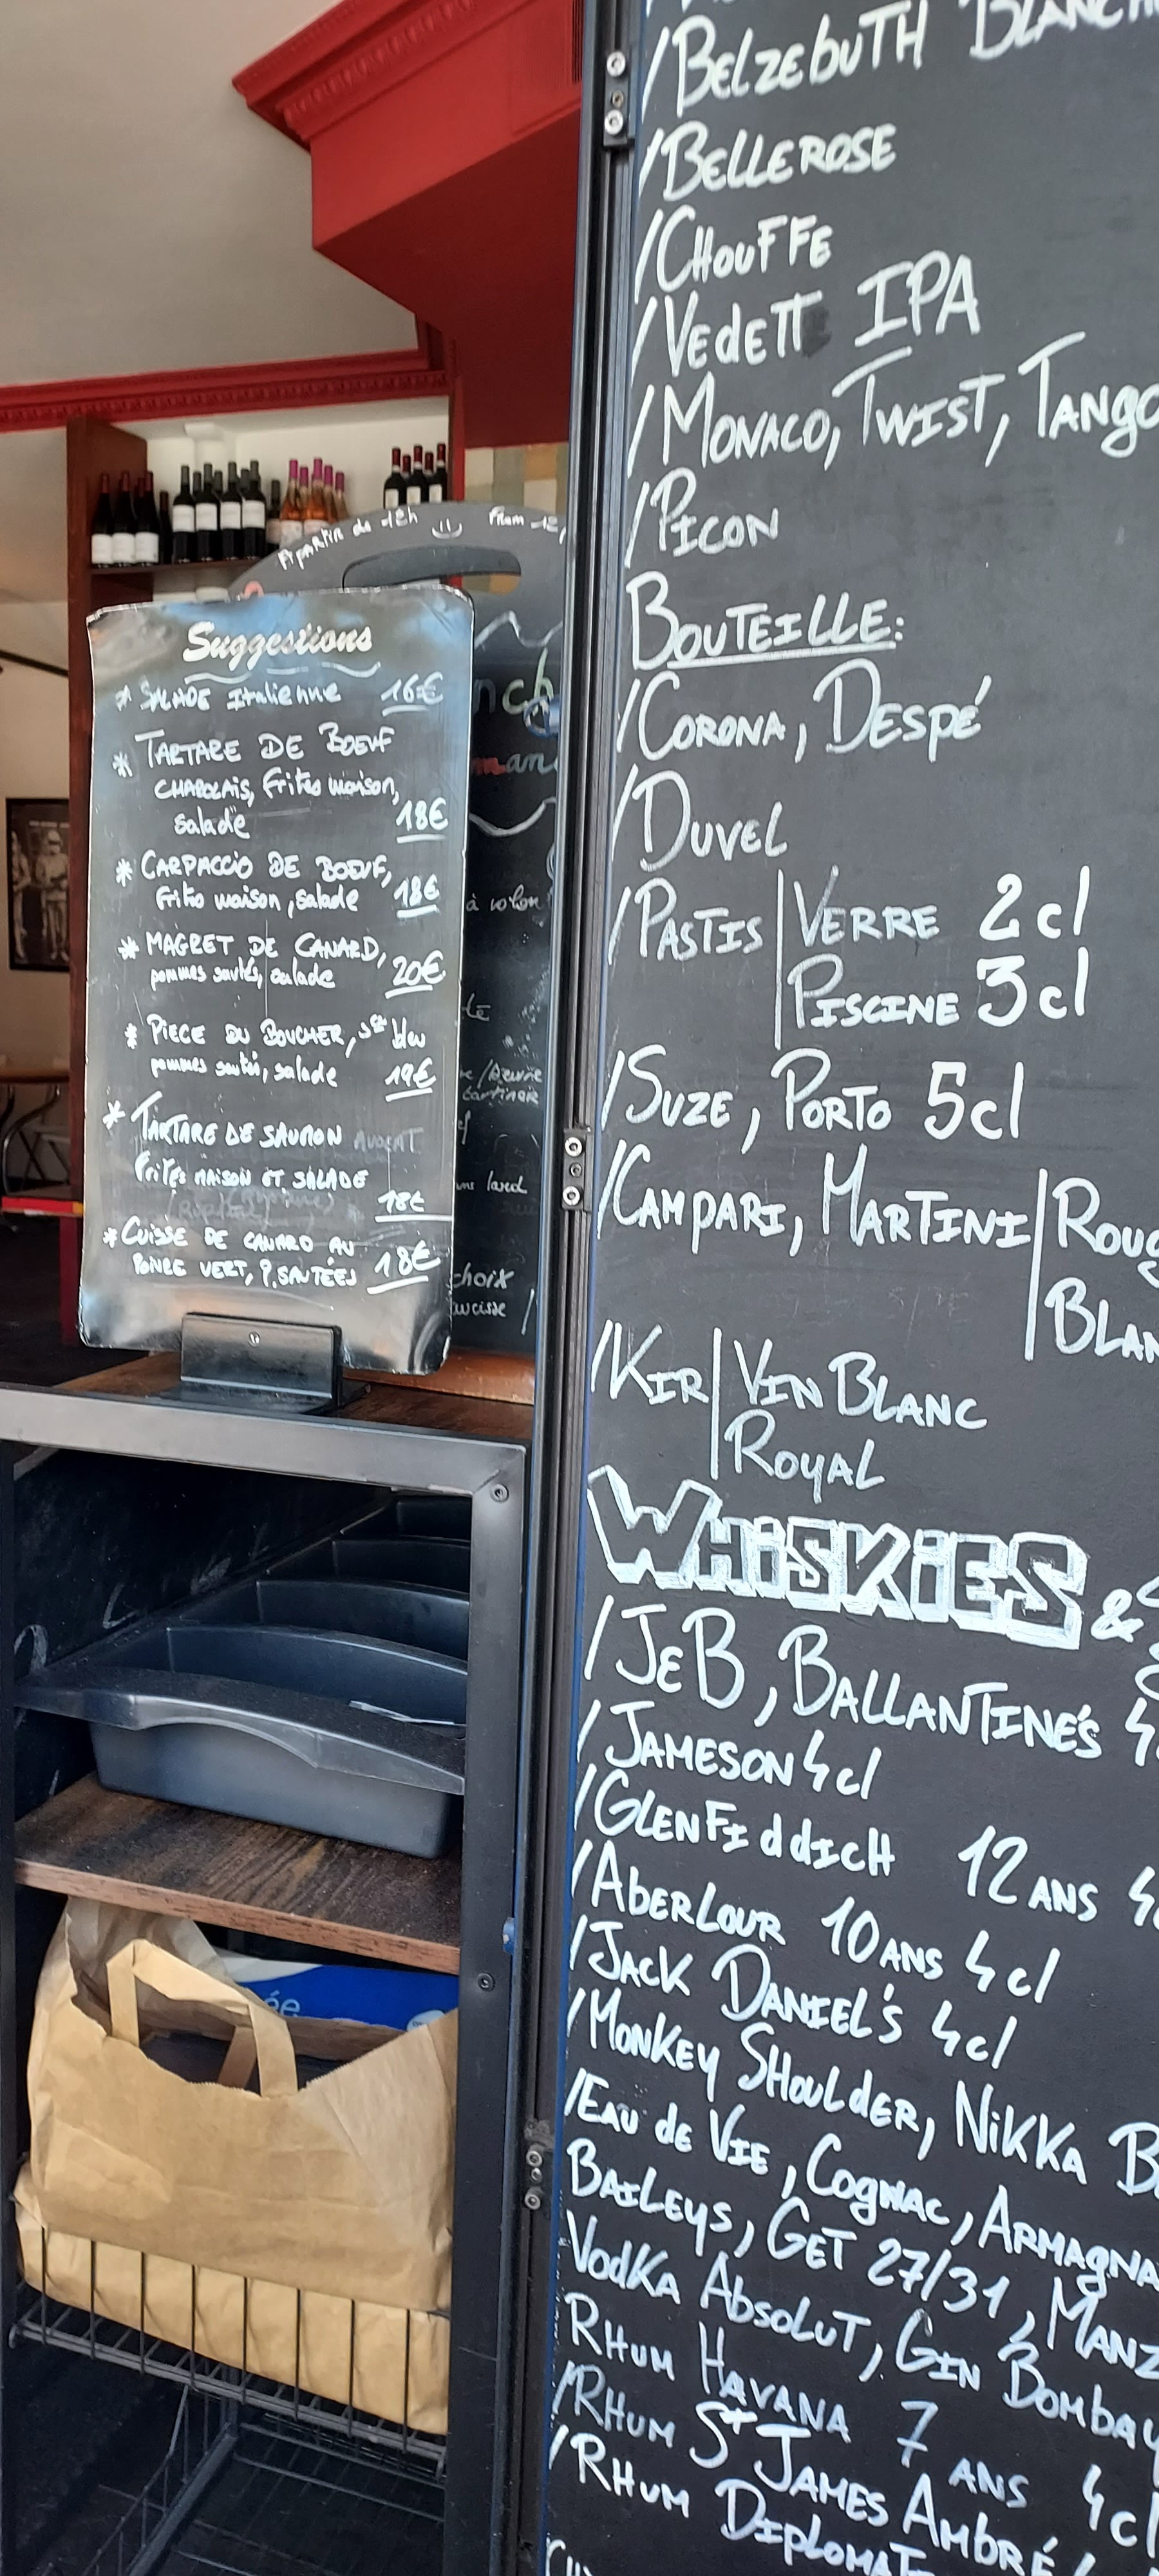 A partir de 12h From 12
Suggestions
* SALADE Italienne 16€
* TARTARE DE BOEUF
CHAROLAIS, frites maison,
salade 18€
* CARPACCIO DE BOEUF,
frites maison, salade 18€
* MAGRET DE CANARD,
pommes sautés, salade 20€
* PIECE DU BOUCHER, sce bleu
pommes sautés, salade 19€
* TARTARE DE SAUMON AVOCAT
Frites MAISON ET SALADE
18€
* CUISSE DE CANARD AU
POIVRE VERT, P. SAUTÉES 18€
à volon
choix
/BELZEBUTH BLANCH
/BELLEROSE
/CHOUFFE
/VEDETT IPA
/MONACO, TWIST, TANGO
/PICON
BOUTEILLE:
/CORONA, DESPÉ
/DUVEL
/PASTIS | VERRE 2cl
| PISCINE 3cl
/SUZE, PORTO 5cl
/CAMPARI, MARTINI | ROUG
| BLAN
/KIR | VIN BLANC
| ROYAL
WHISKIES &
/JEB, BALLANTINE'S 4
/JAMESON 4cl
/GLENFIDDICH 12 ANS 4
/ABERLOUR 10 ANS 4cl
/JACK DANIEL'S 4cl
/MONKEY SHOULDER, NIKKA B
/EAU de VIE, COGNAC, ARMAGNA
BAILEYS, GET 27/31, MANZ
VODKA ABSOLUT, GIN BOMBAY
RHUM HAVANA 7 ANS 4cl
/RHUM ST JAMES AMBRÉ
/RHUM DIPLOMAT